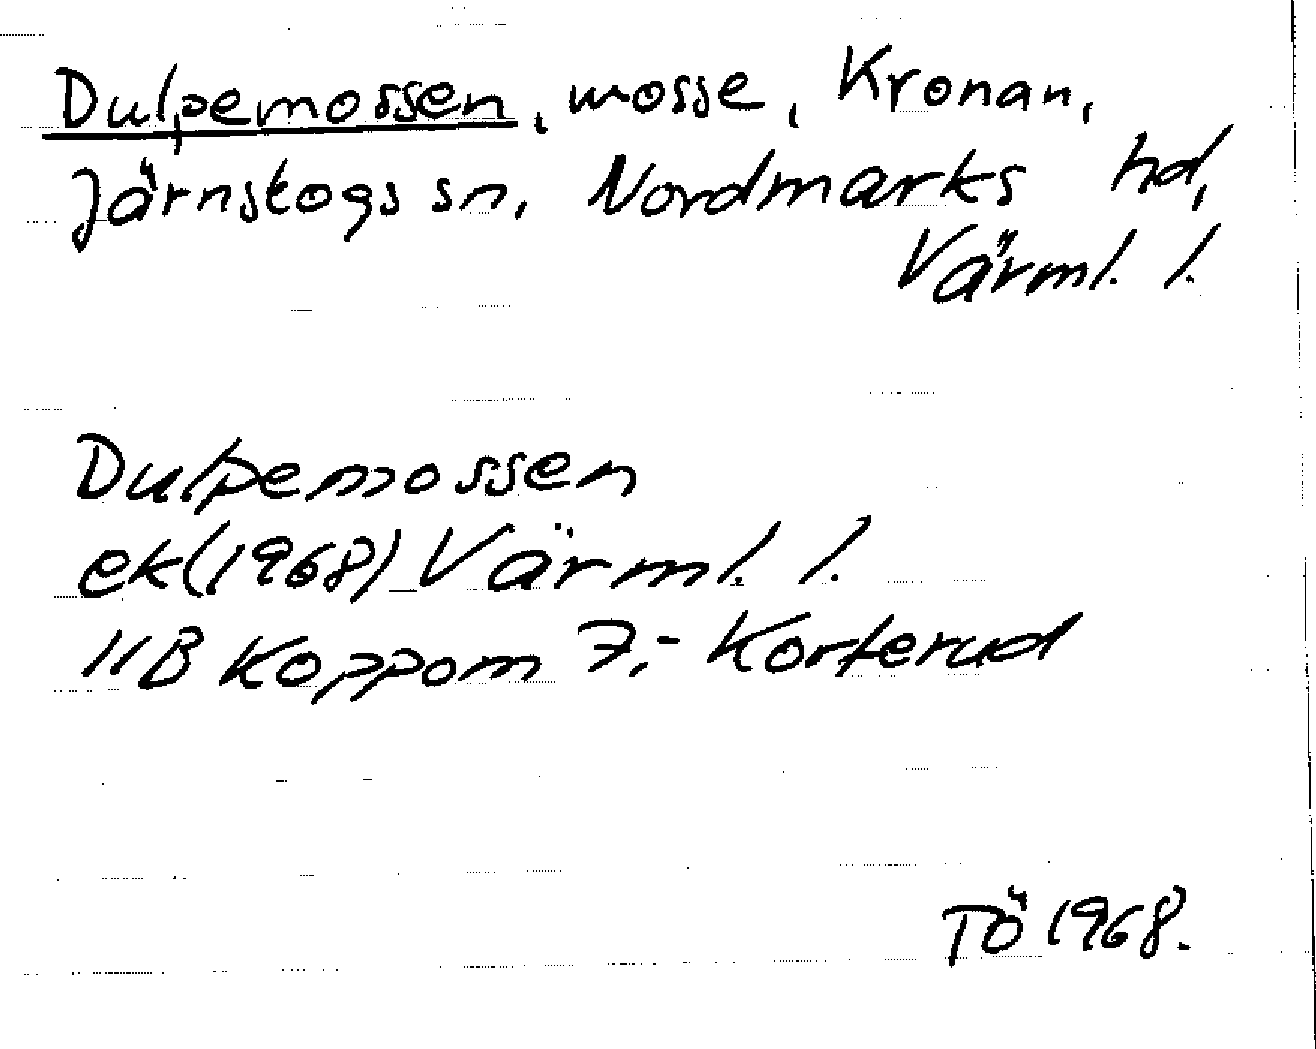 Dulpemossen, mosse, Kronan,
Järnskogs sn, Nordmarks hd,
Värml. l.
Dulpemossen
ek(1968) Värml. l.
11B Koppom 7:- Korterud
TÖ 1968.